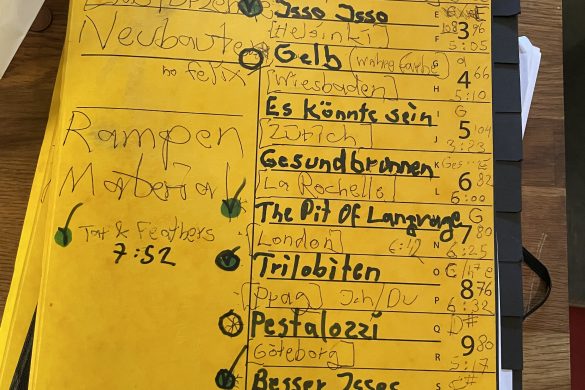 Neubauten
no felix
Rampen
Material
Tar & Feathers
7:52
Isso Isso
[Helsinki]
3
76
5:05
Gelb [wahre Farbe]
[Wiesbaden]
4
66
5:10
Es könnte sein
[Zürich]
G
5
104
3:23
Gesundbrunnen
[La Rochelle]
6
82
6:00
The Pit Of Language
[London]
6:12
G
7
80
6:25
Trilobiten
[Prag] Ich/Du
8
76
6:32
Pestalozzi
[Göteborg]
D#
9
80
5:17
Besser Isses
E
F
G
H
I
J
K
L
N
O
P
Q
R
S